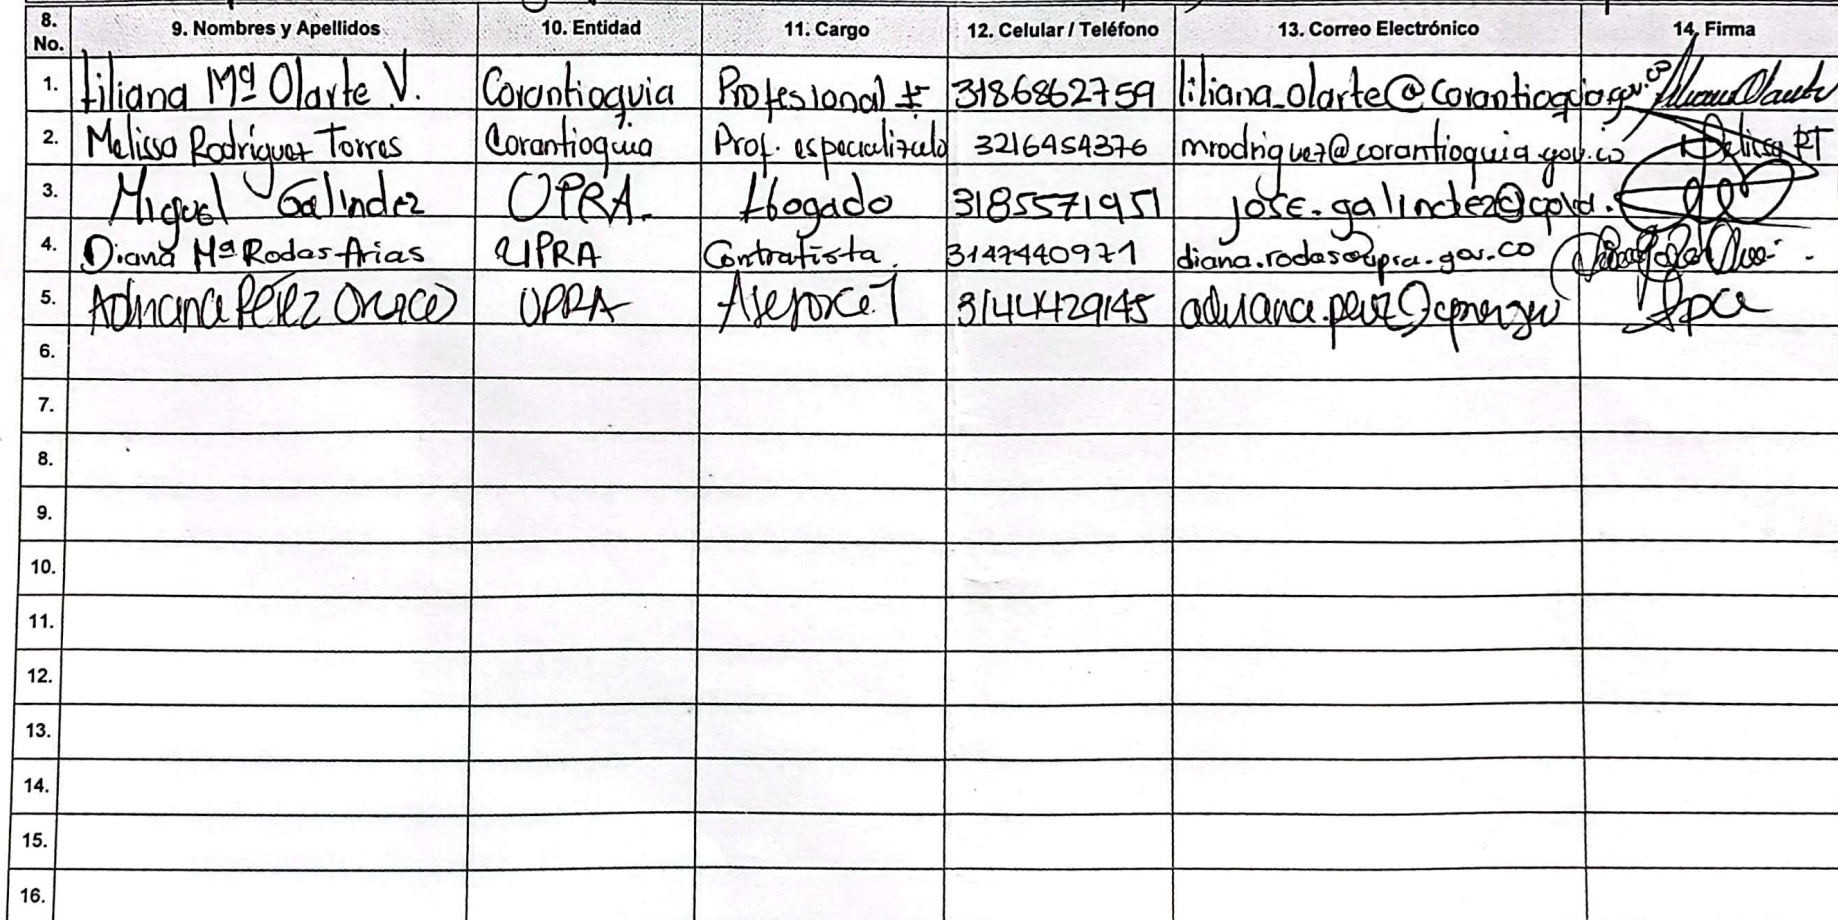 8. No. 9. Nombres y Apellidos 10. Entidad 11. Cargo 12. Celular / Teléfono 13. Correo Electrónico 14. Firma
1. Liliana Mª Olarte V. Corantioquia Profesional 3186862759 liliana_olarte@corantioquia.gov.co
2. Melissa Rodríguez Torres Corantioquia Prof. especializado 3216454376 mrodriguez@corantioquia.gov.co Melissa RT
3. Miguel Galindez UPRA. Abogado 3185571951
4. Diana Mª Rodas Arias UPRA Contratista. 3147440971 diana.rodas@upra.gov.co
5. Adriana PÉREZ UPRA 3144429145
6.
7.
8.
9.
10.
11.
12.
13.
14.
15.
16.